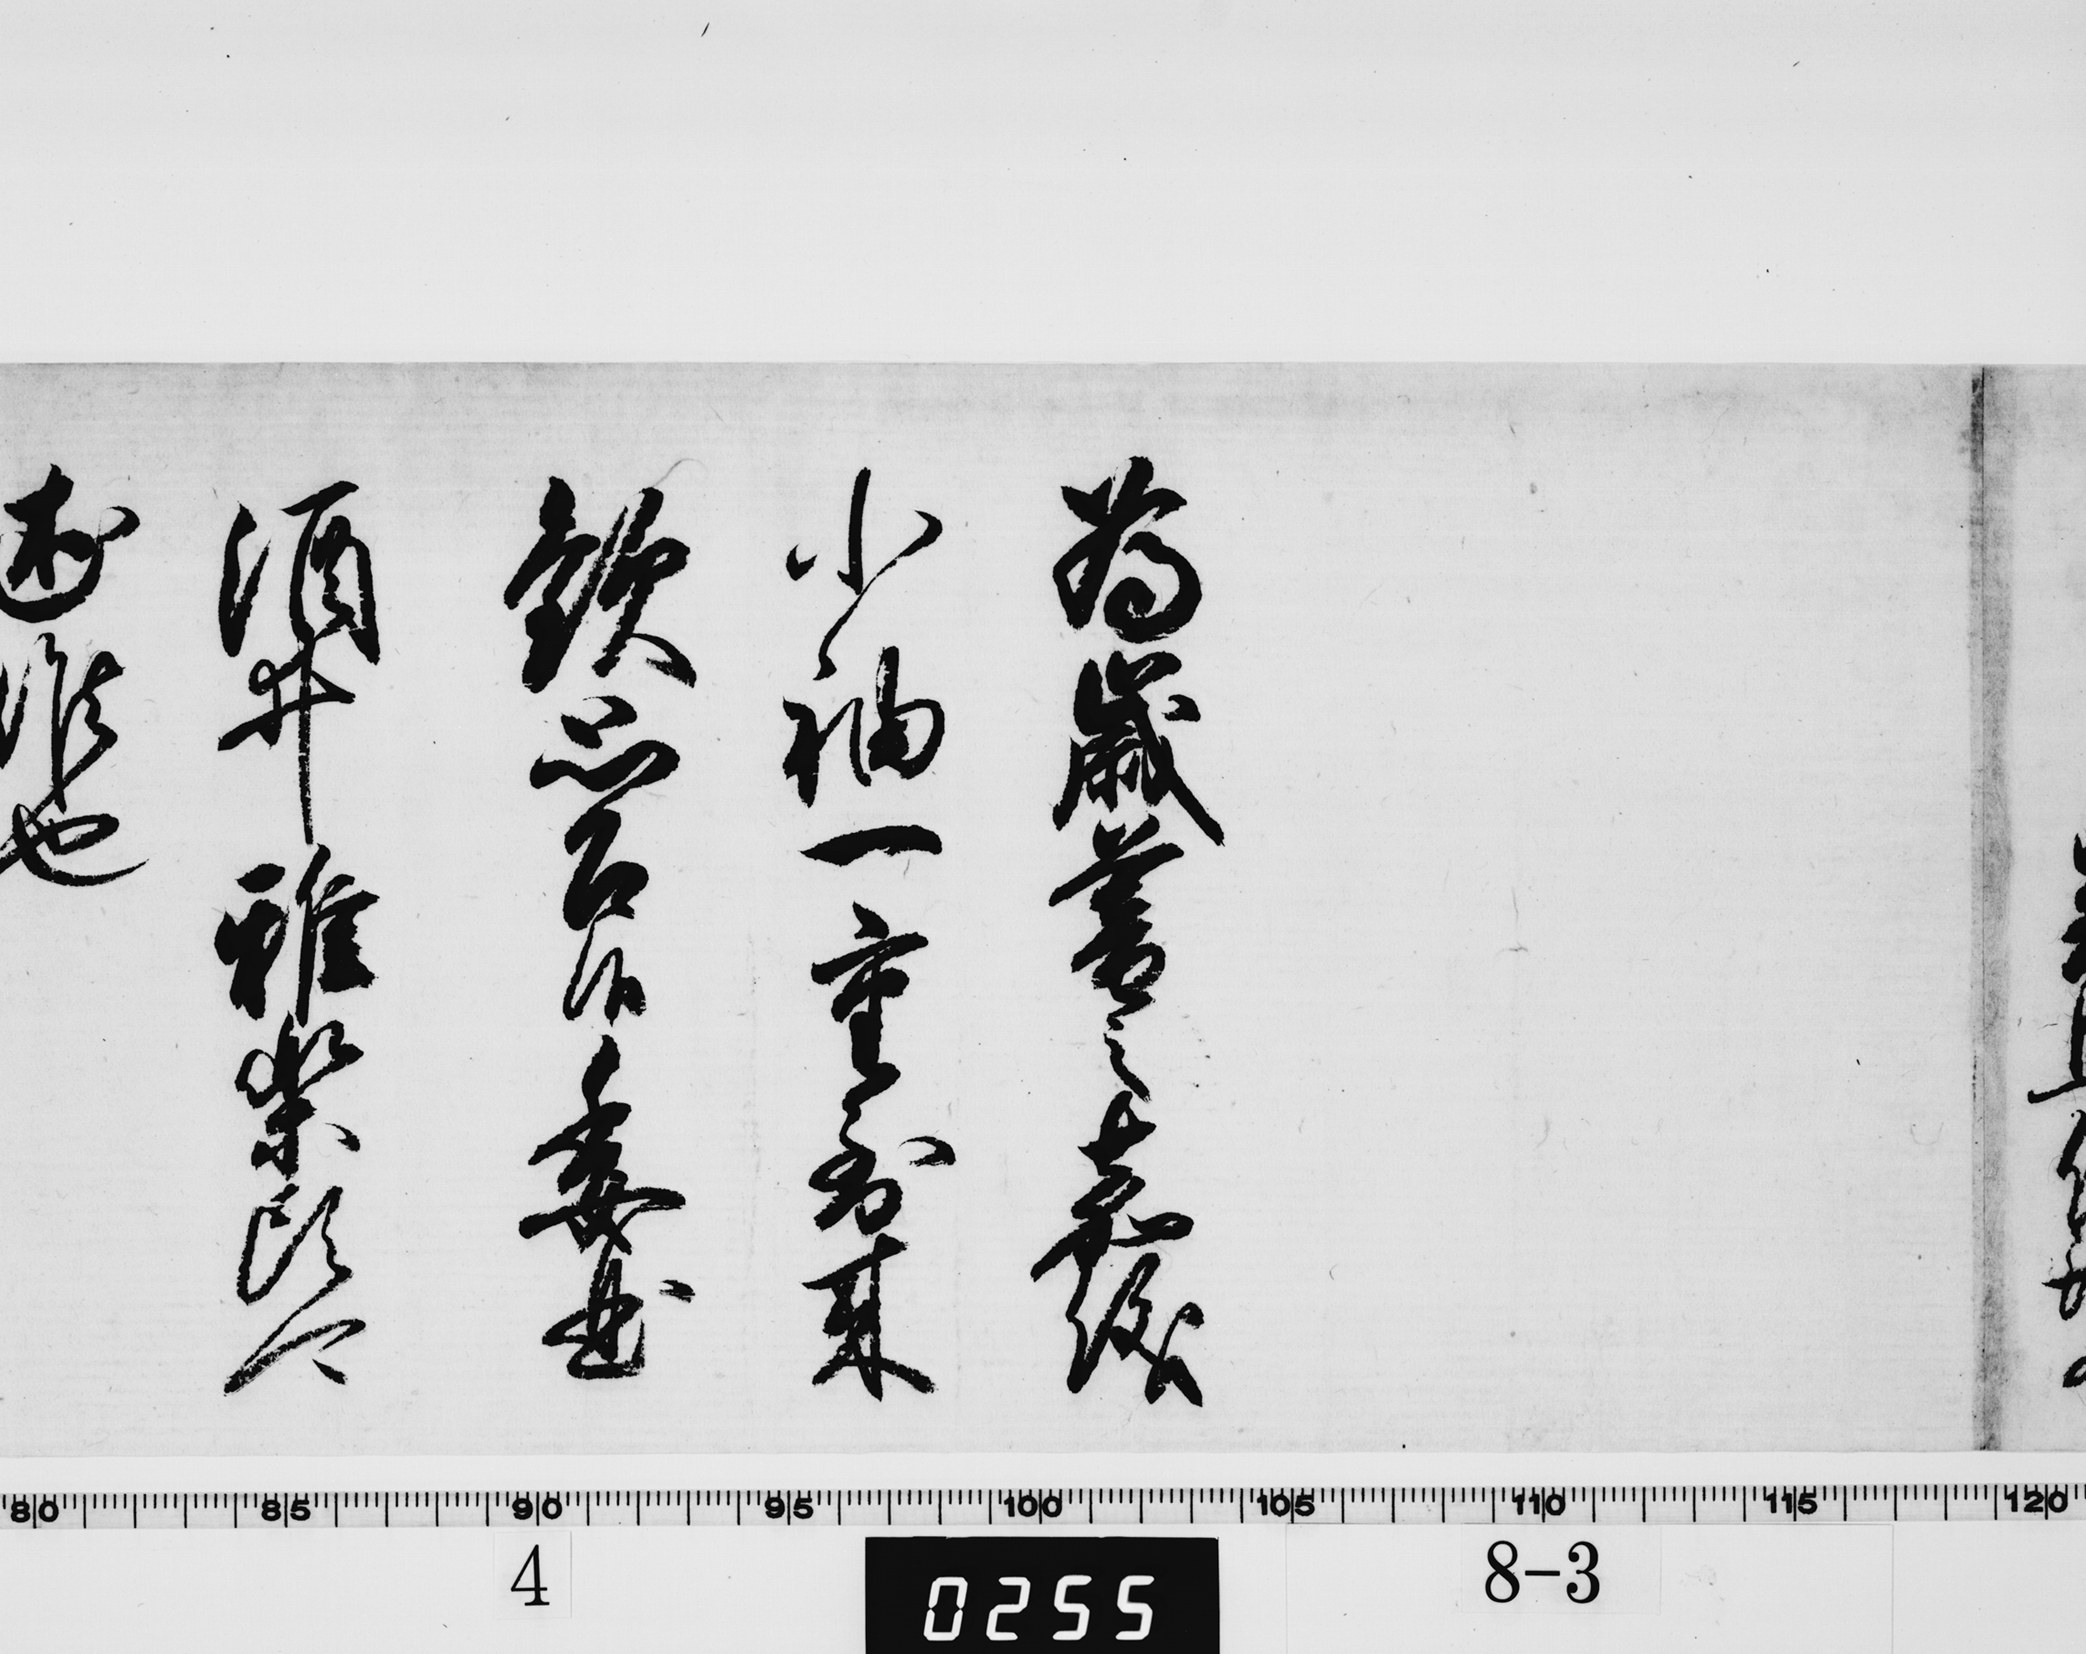 為歳暮之嘉儀
小袖一重到来
欽思召候委曲
酒井雅楽頭可
述候也
80 85 90 95 100 105 110 115 120
4 0255 8-3